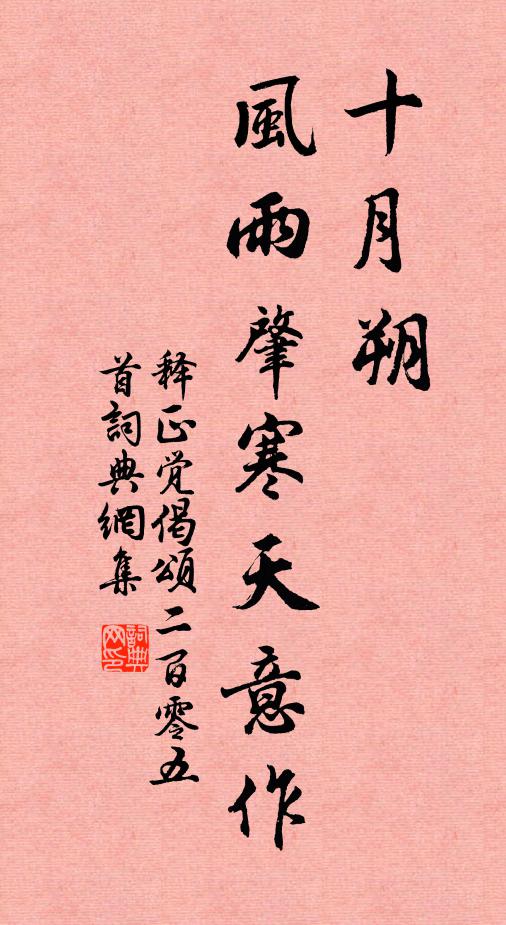 十月朔
風雨肇寒天意作
释正觉偈頌二百零五
首詞典網集
詞典网印